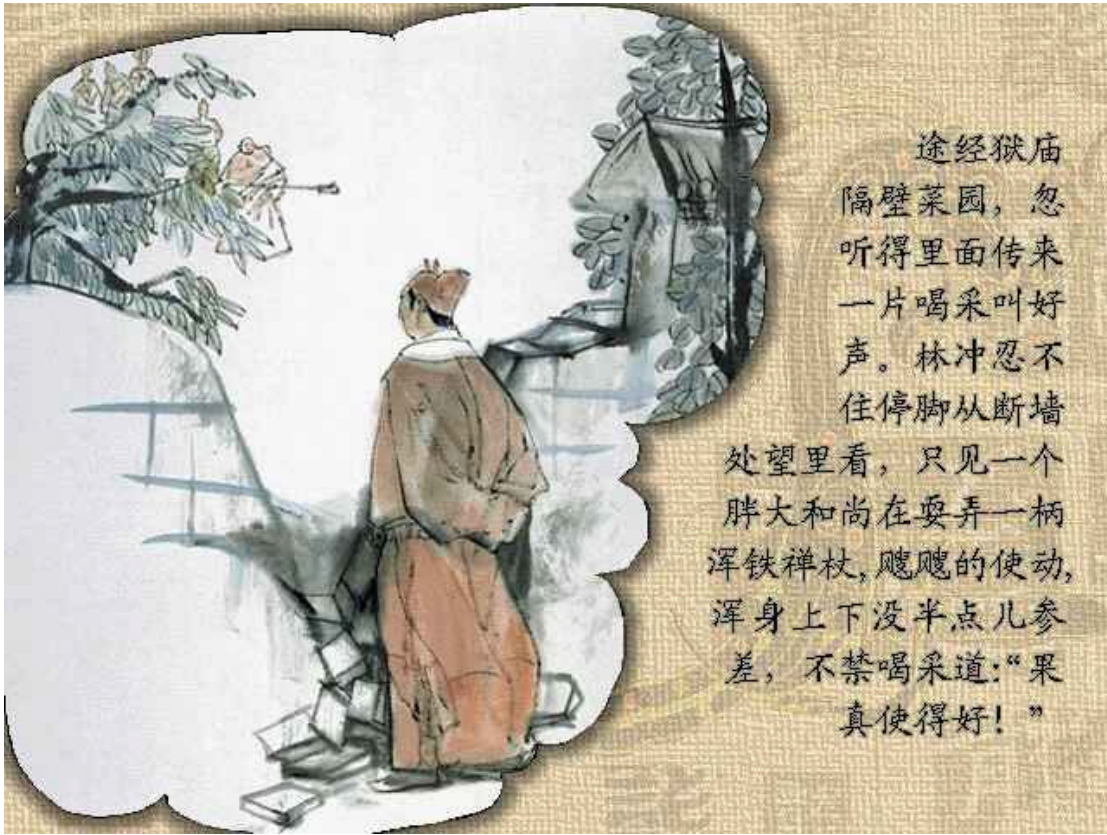 途经狱庙
隔壁菜园，忽
听得里面传来
一片喝采叫好
声。林冲忍不
住停脚从断墙
处望里看，只见一个
胖大和尚在耍弄一柄
浑铁禅杖,飕飕的使动,
浑身上下没半点儿参
差，不禁喝采道:“果
真使得好!”